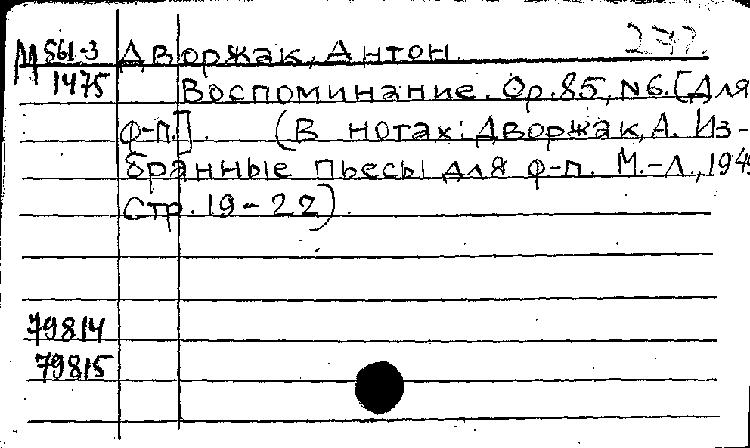 М 561-3 Дворжак, Антон. 277.
1475 Воспоминание. Op. 85, N6. [Для
ф-п.]. (В нотах: Дворжак, А. Из-
бранные пьесы для ф-п. М.-Л.,
Стр. 19-22).
79814
79815